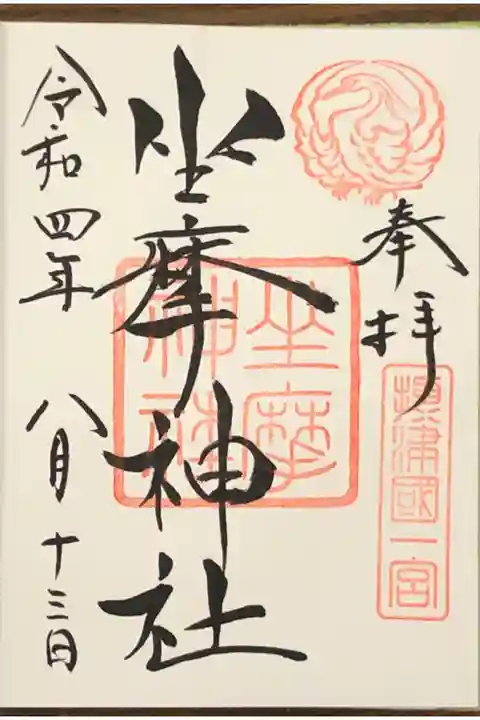 奉拝
摂津國一宮
坐摩神社
坐摩
神社
令和四年 八月十三日